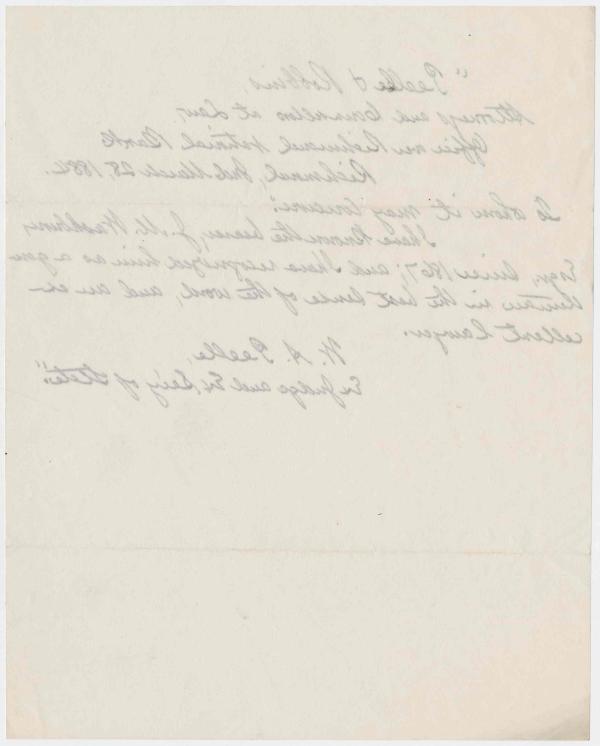 "Peelle & Robbins,
Attorneys and Counselors at Law,
Office over Richmond National Bank
Richmond, Ind. March 28, 1882.
To whom it may Concern:
I have known the bearer, J. M. Washburn,
Esqr., since 1867; and I have recognized him as a gen-
tleman in the best sense of the word, and an ex-
cellent Lawyer.
W. A. Peelle,
Ex Judge and Ex Sec'y of State."